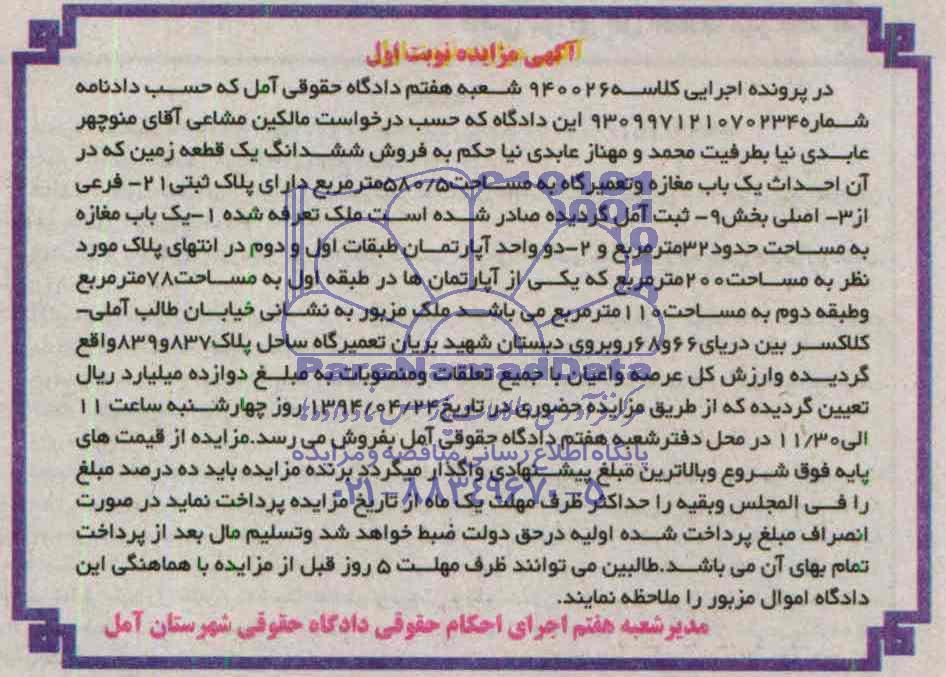 آگهی مزایده نوبت اول
در پرونده اجرایی کلاسه۹۴۰۰۲۶ شعبه هفتم دادگاه حقوقی آمل که حسب دادنامه
شماره۹۳۰۹۹۷۱۲۱۰۷۰۲۳۴ این دادگاه که حسب درخواست مالکین مشاعی آقای منوچهر
عابدی نیا بطرفیت محمد و مهناز عابدی نیا حکم به فروش ششدانگ یک قطعه زمین که در
آن احداث یک باب مغازه وتعمیرگاه به مساحت۵۸۰/۵مترمربع دارای پلاک ثبتی۲۱- فرعی
از۳- اصلی بخش۹- ثبت آمل گردیده صادر شده است ملک تعرفه شده ۱-یک باب مغازه
به مساحت حدود۳۲مترمربع و ۲-دو واحد آپارتمان طبقات اول و دوم در انتهای پلاک مورد
نظر به مساحت۲۰۰مترمربع که یکی از آپارتمان ها در طبقه اول به مساحت۷۸مترمربع
وطبقه دوم به مساحت۱۱۰مترمربع می باشد ملک مزبور به نشانی خیابان طالب آملی-
کلاکسر بین دریای۶۶و۶۸روبروی دبستان شهید بریان تعمیرگاه ساحل پلاک۸۳۷و۸۳۹واقع
گردیده وارزش کل عرصه واعیان با جمیع تعلقات ومنصوبات به مبلغ دوازده میلیارد ریال
تعیین گردیده که از طریق مزایده حضوری در تاریخ۱۳۹۴/۰۴/۲۴ روز چهارشنبه ساعت ۱۱
الی۱۱/۳۰ در محل دفترشعبه هفتم دادگاه حقوقی آمل بفروش می رسد.مزایده از قیمت های
پایه فوق شروع وبالاترین مبلغ پیشنهادی واگذار میگردد برنده مزایده باید ده درصد مبلغ
را فی المجلس وبقیه را حداکثر ظرف مهلت یک ماه از تاریخ مزایده پرداخت نماید در صورت
انصراف مبلغ پرداخت شده اولیه درحق دولت ضبط خواهد شد وتسلیم مال بعد از پرداخت
تمام بهای آن می باشد.طالبین می توانند ظرف مهلت ۵ روز قبل از مزایده با هماهنگی این
دادگاه اموال مزبور را ملاحظه نمایند.
مدیرشعبه هفتم اجرای احکام حقوقی دادگاه حقوقی شهرستان آمل
ParsNamadData
پایگاه اطلاع رسانی مناقصه و مزایده
۰۲۱-۸۸۳۴۹۶۷۰-۵